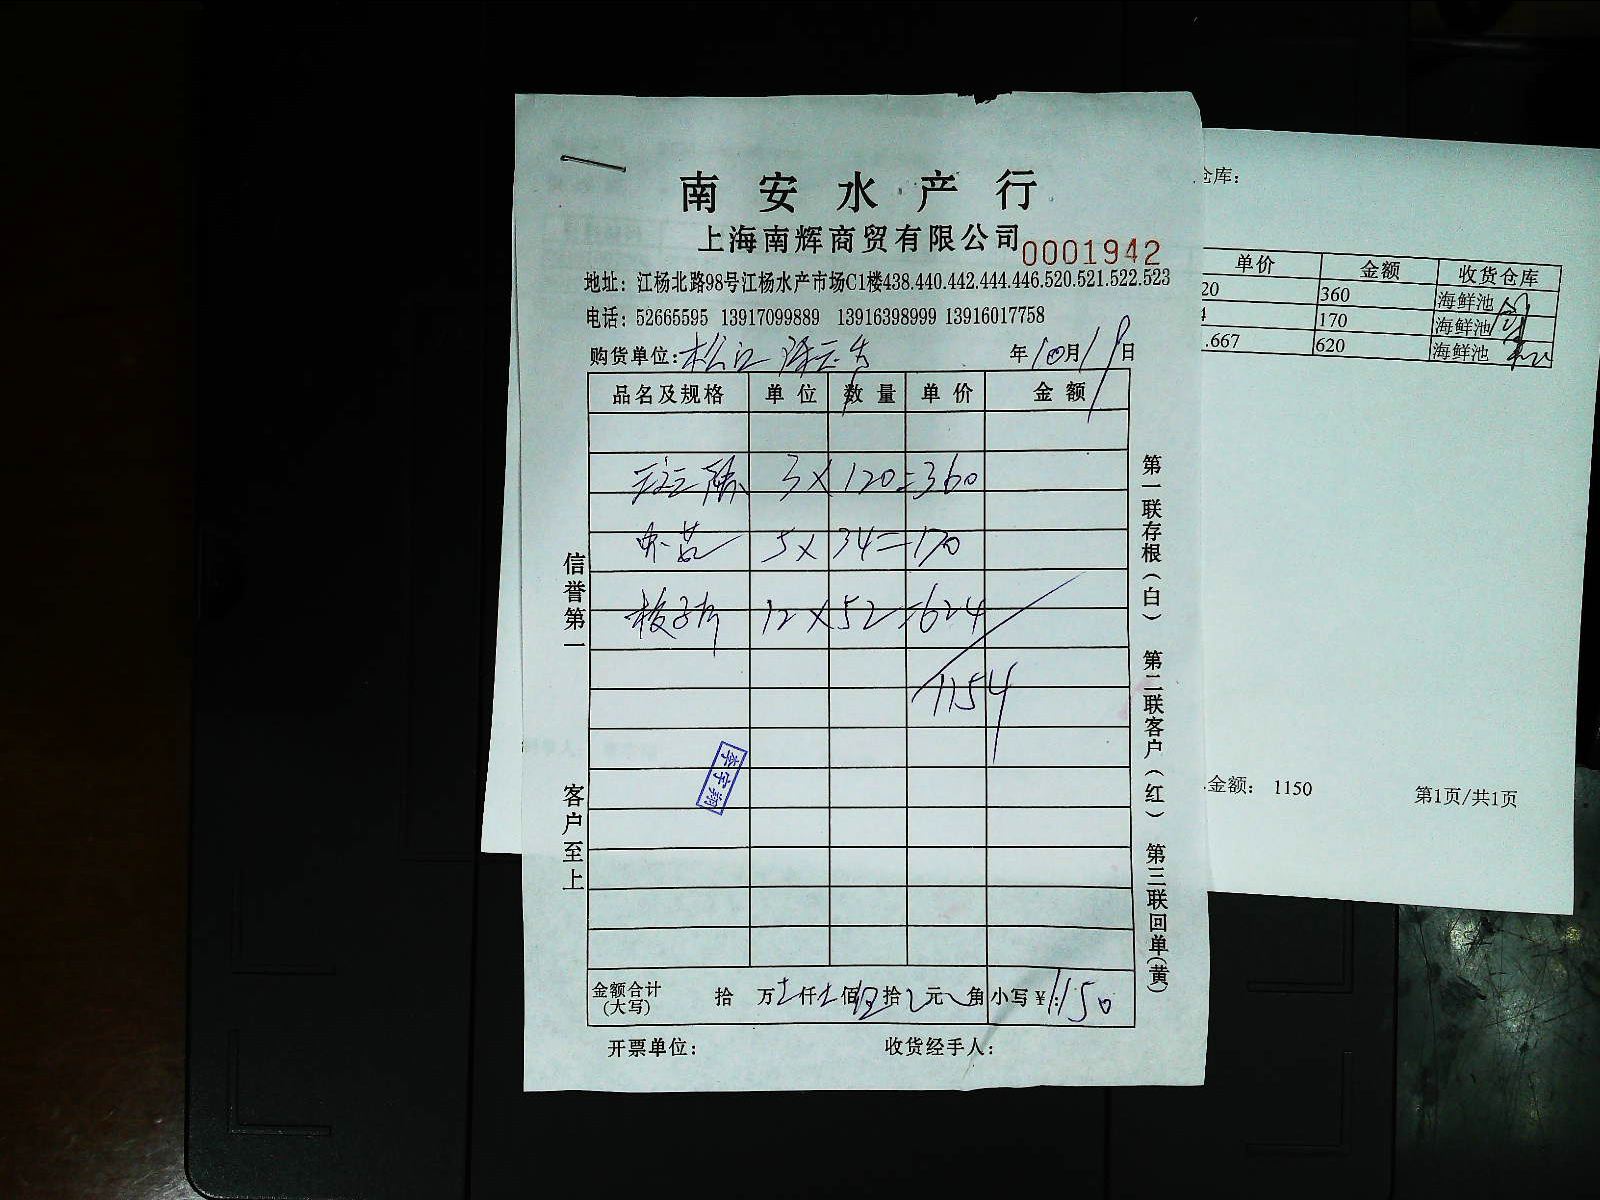 南安水产行
上海南辉商贸有限公司
0001942
地址：江杨北路98号江杨水产市场C1楼438.440.442.444.446.520.521.522.523
电话：52665595 13917099889 13916398999 13916017758
购货单位：松江
年10月19日
品名及规格 单位 数量 单价 金额
3×120=360
5×34=170
12×52=624
1154
李宇翔
金额合计（大写） 拾 万 仟 佰 拾 元 角 小写￥：1150
开票单位： 收货经手人：
信誉第一
客户至上
第一联存根（白） 第二联客户（红） 第三联回单（黄）
仓库：
单价 金额 收货仓库
20 360 海鲜池
4 170 海鲜池
.667 620 海鲜池
金额： 1150
第1页/共1页